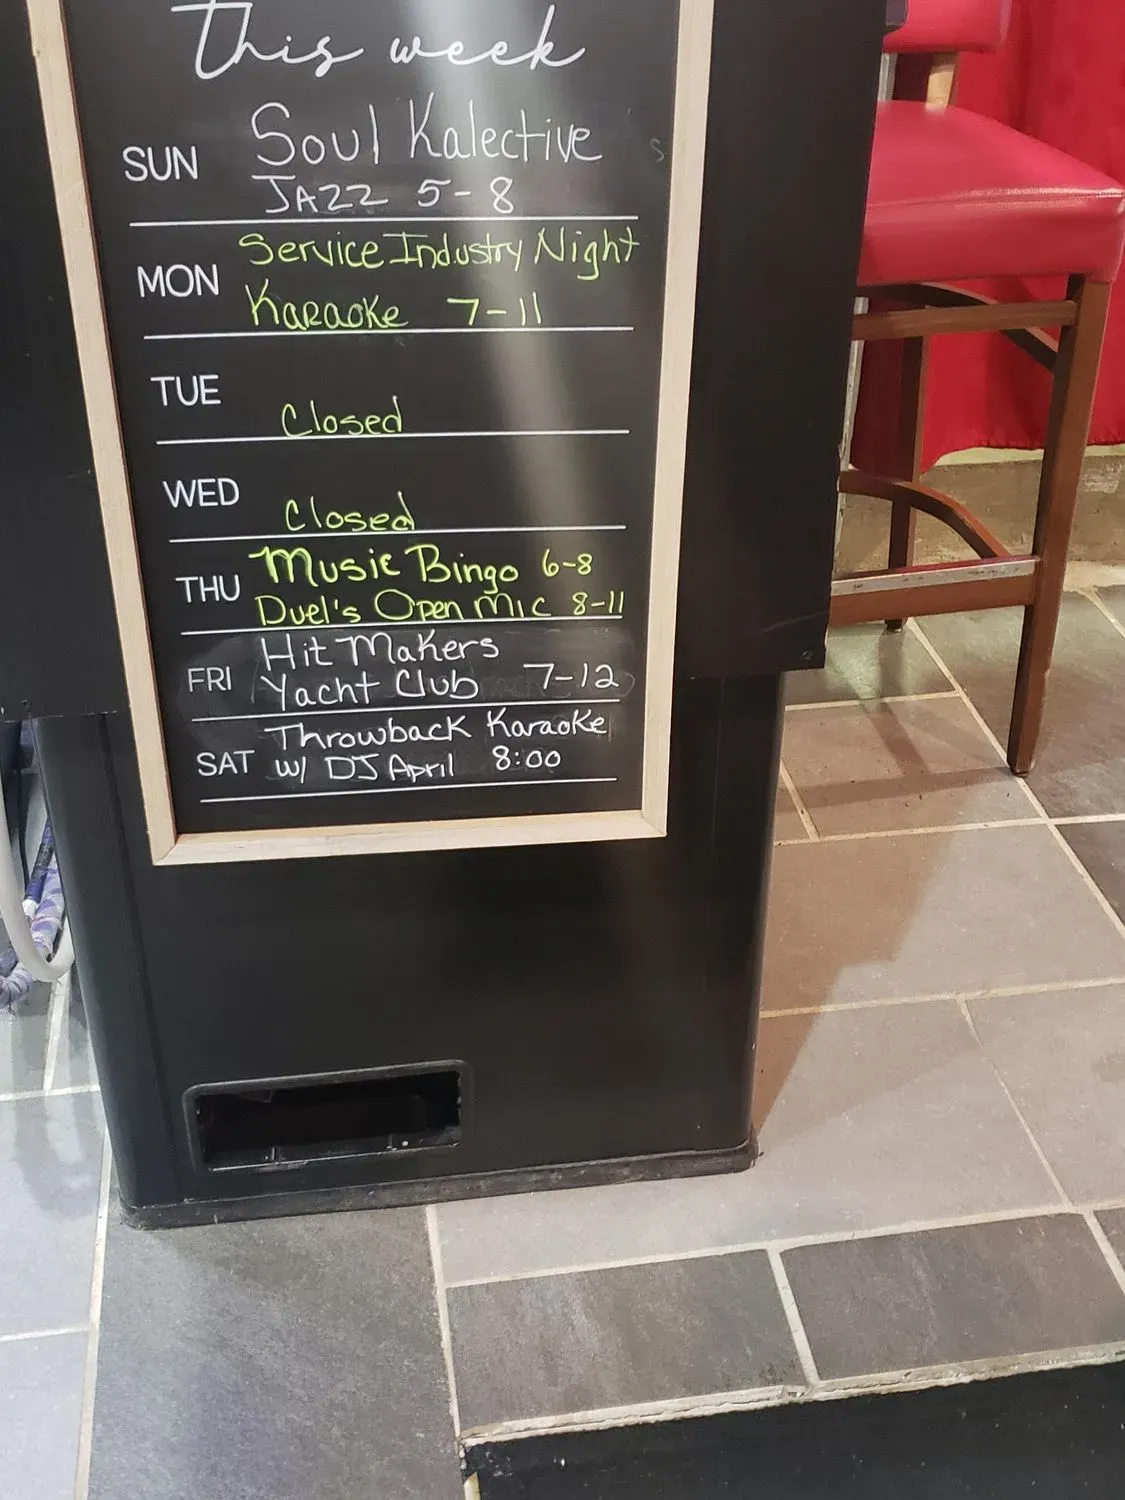 This week
SUN
Soul Kalective
JAZZ 5-8
MON
Service Industry Night
Karaoke 7-11
TUE
Closed
WED
Closed
THU
Music Bingo 6-8
Duel's Open Mic 8-11
FRI
Hit Makers
Yacht Club 7-12
SAT
Throwback Karaoke
w/ DJ April 8:00